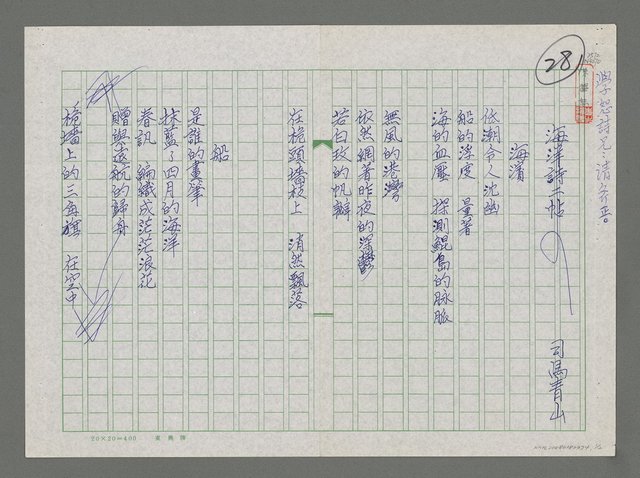 學恕詩兄 請斧正。
28
海洋詩二帖
司馬青山
海濱
低潮令人沈幽
船的浮度 量著
海的血壓 探測鯤島的脉脈
無風的港灣
依然網著昨夜的深鬱
若白玫的帆瓣
在桅頭墻枝上 消然飄落
船
是誰的畫筆
抹藍了四月的海洋
春訊 編織成茫茫浪花
贈與遠航的歸舟
桅墻上的三角旗 在空中
20×20=400